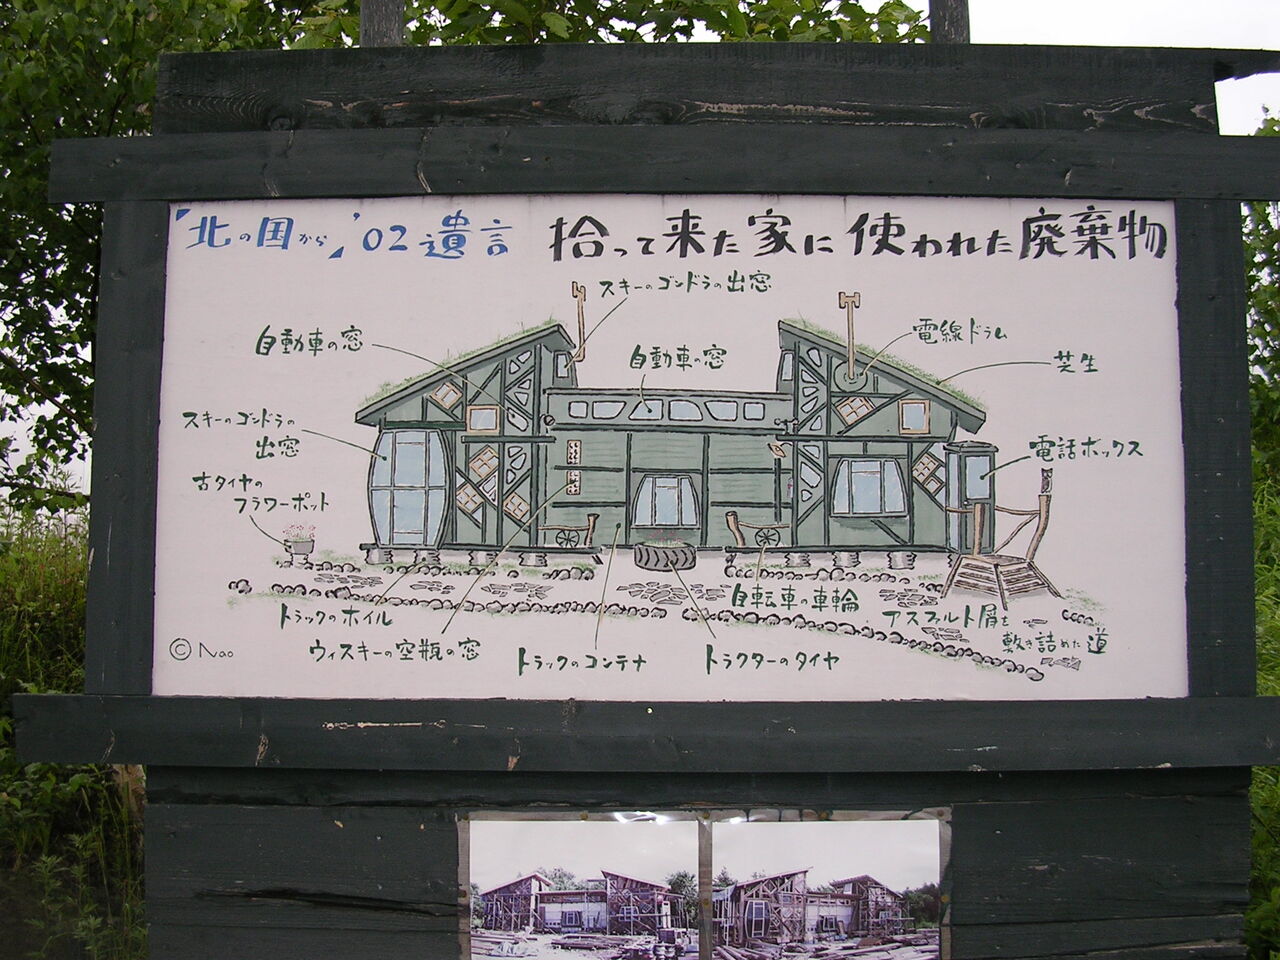 「北の国から」'02遺言 拾って来た家に使われた廃棄物
スキーのゴンドラの出窓
自動車の窓
自動車の窓
電線ドラム
芝生
スキーのゴンドラの
出窓
電話ボックス
古タイヤの
フラワーポット
自転車の車輪
トラックのホイル
アスファルト屑を
敷き詰めた道
ウィスキーの空瓶の窓
トラックのコンテナ
トラクターのタイヤ
© Nao